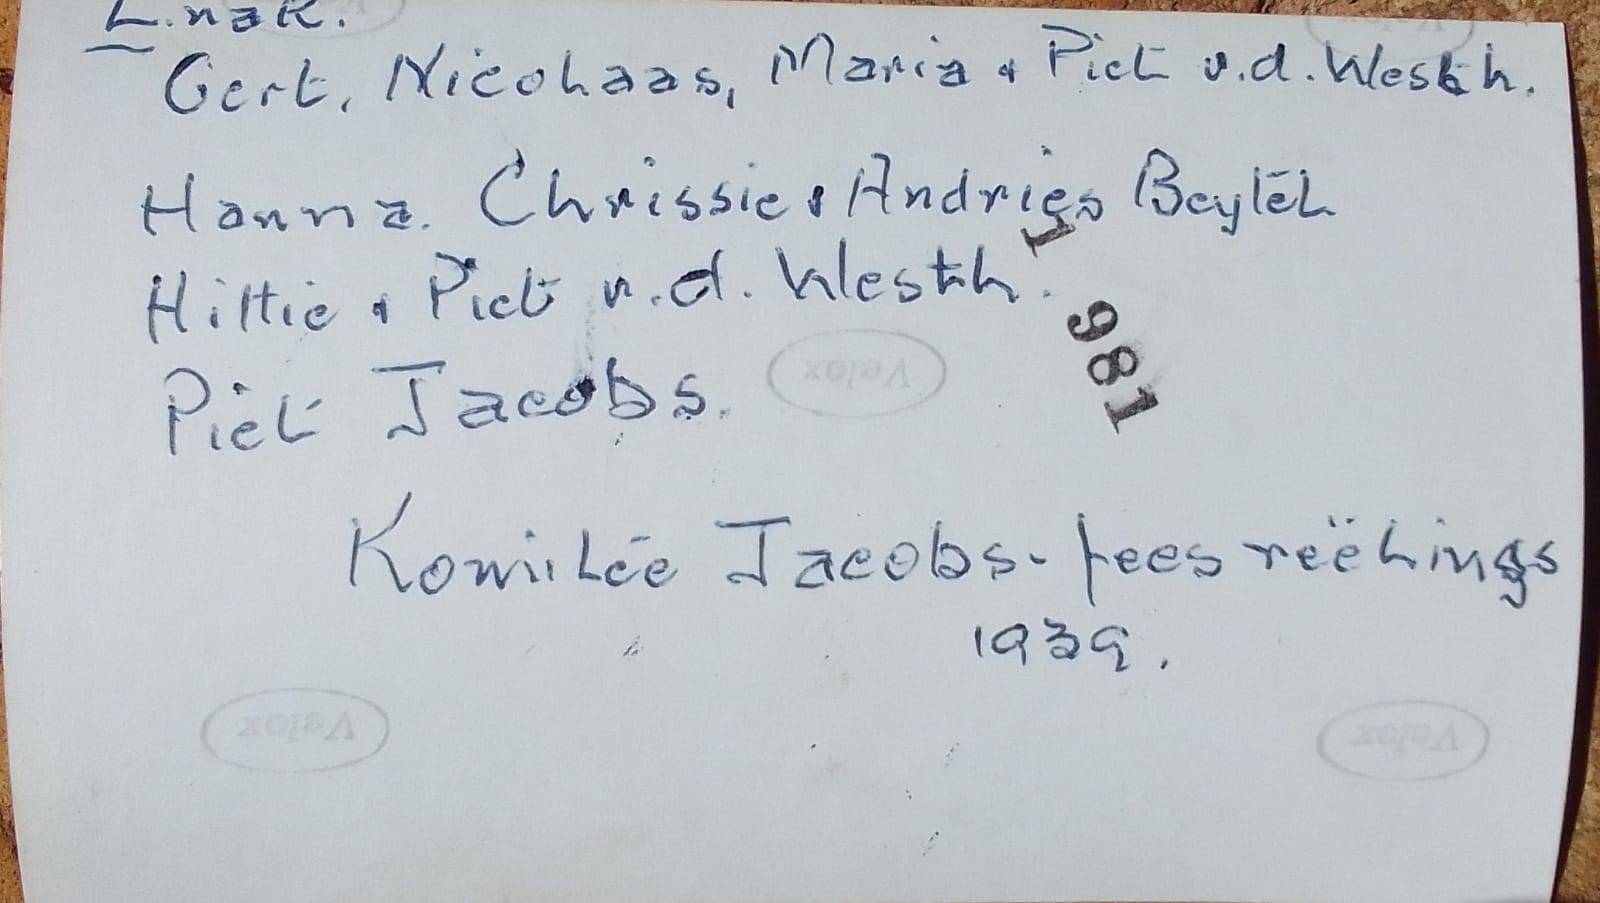 L.nak.
Gert, Nicolaas, Maria + Piet v.d. Westh.
Hanna. Chrissie + Andries Beytel
Hittie + Piet v.d. Westh.
1 981
Velox
Piet Jacobs.
Komitee Jacobs-feesreëlings
1939.
Velox
Velox